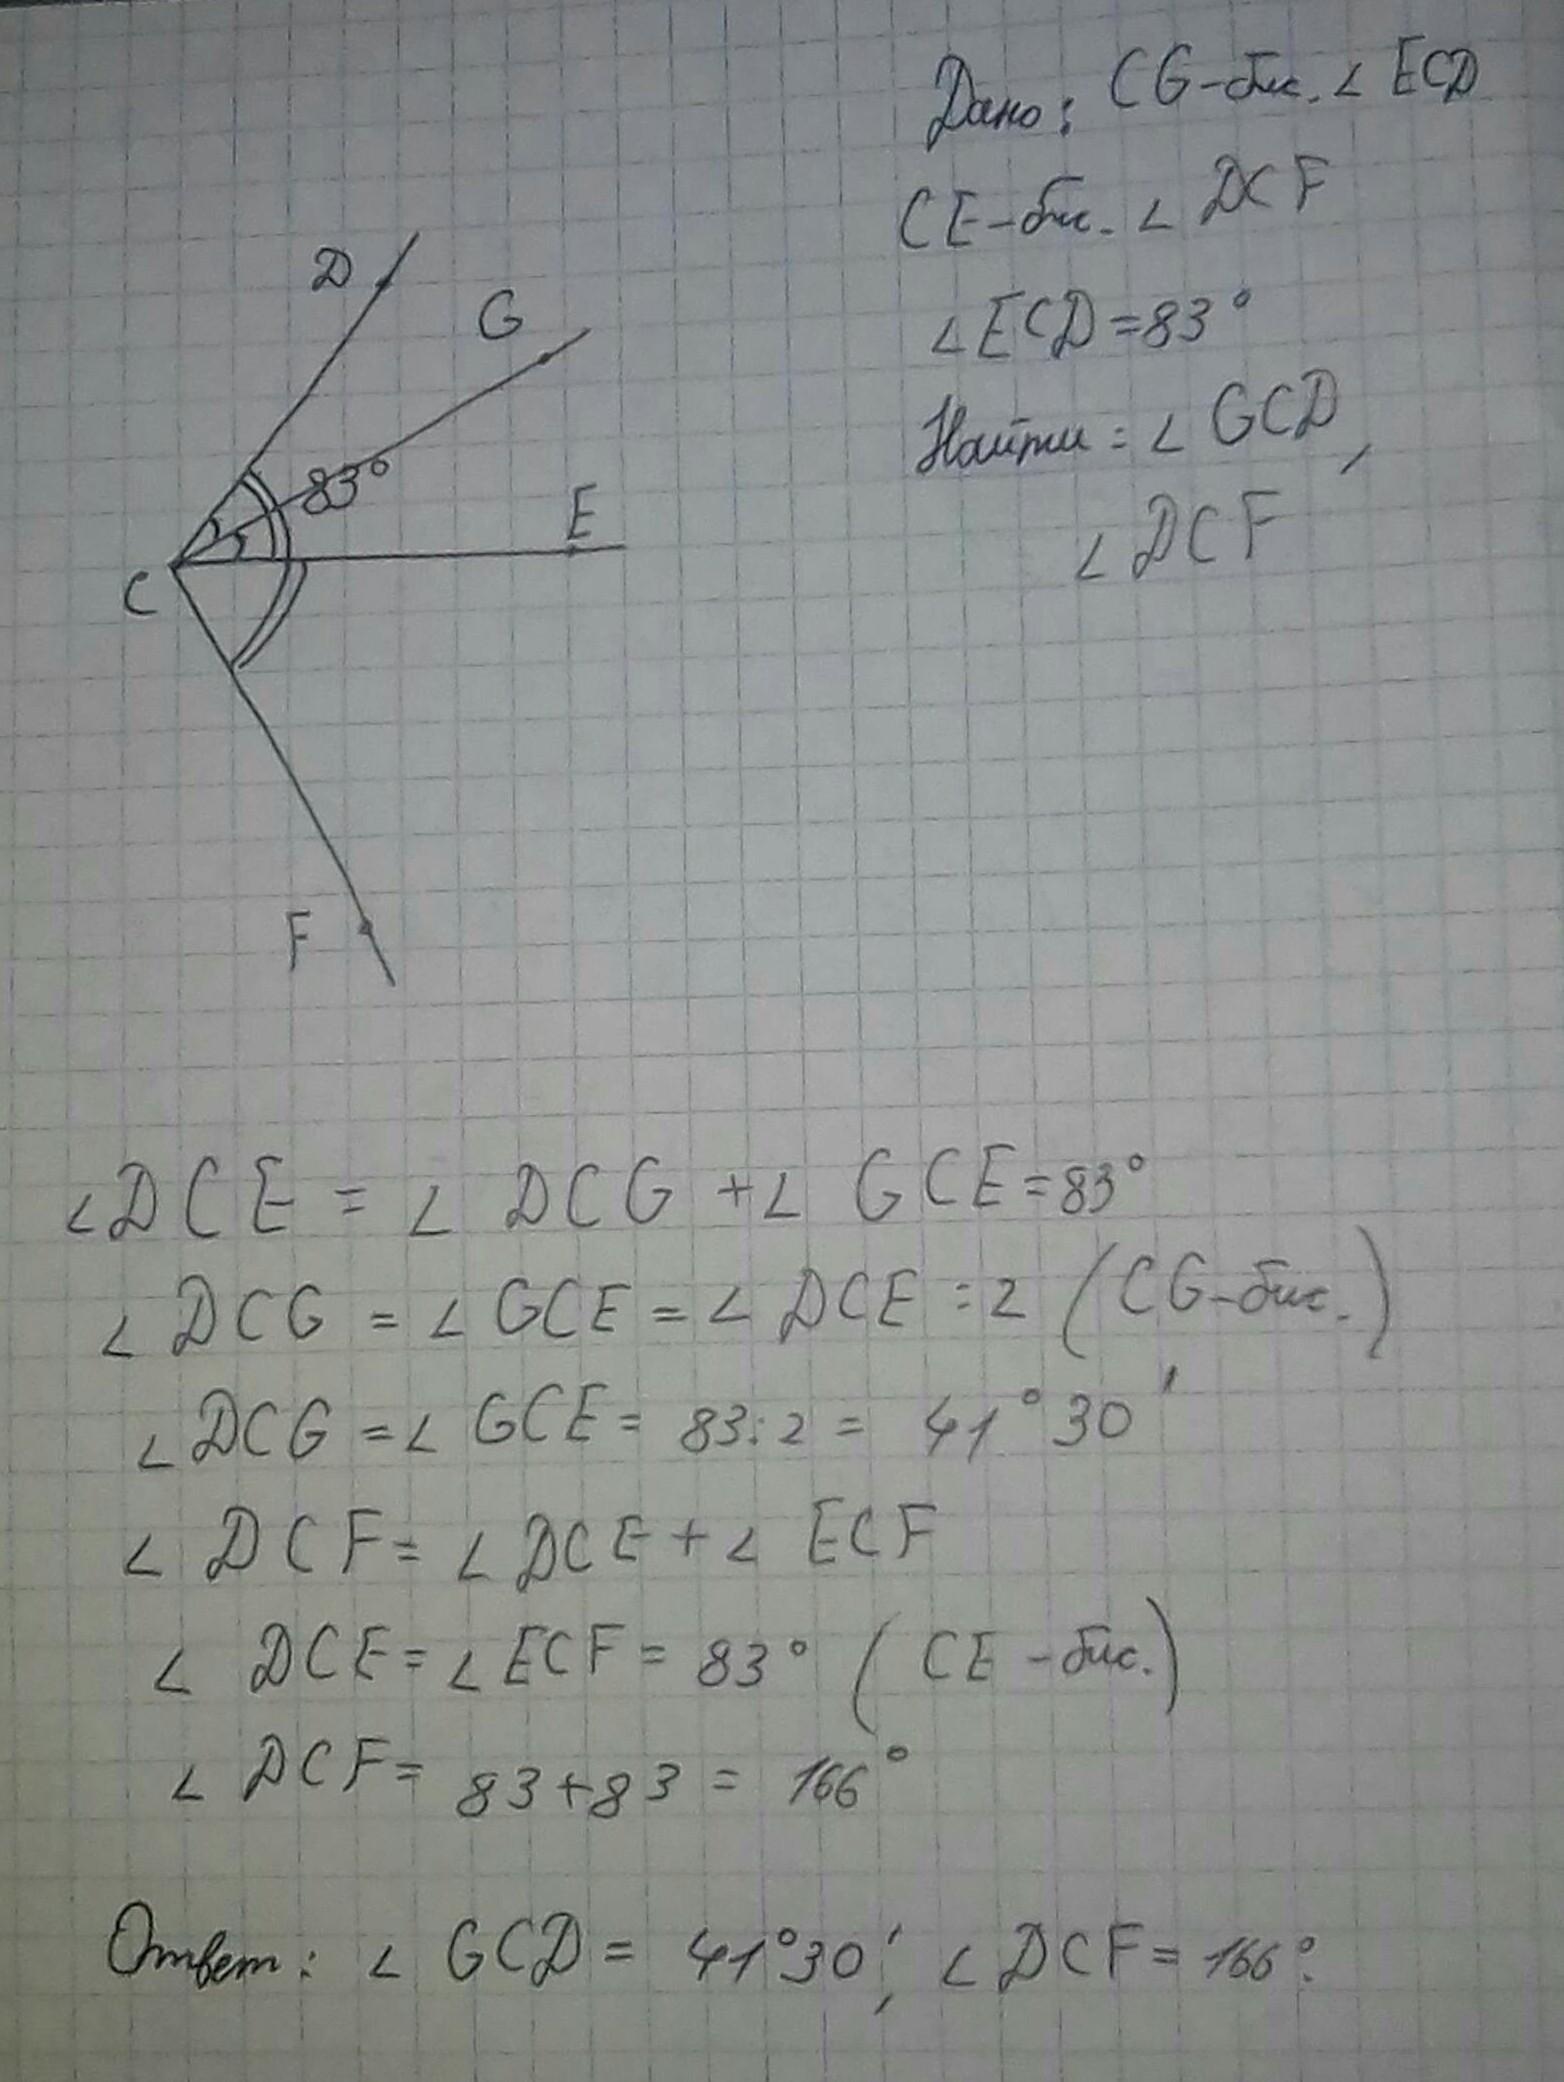 Дано: CG-бис. ∠ ECD
CE-бис. ∠ DCF
∠ECD=83°
Найти: ∠ GCD,
∠ DCF
D
G
83°
E
C
F
∠DCE = ∠ DCG +∠ GCE=83°
∠ DCG = ∠ GCE = ∠ DCE :2 (CG-бис.)
∠ DCG =∠ GCE= 83:2 = 41°30'
∠ DCF= ∠DCE+∠ ECF
∠ DCE=∠ECF= 83° (CE-бис.)
∠ DCF= 83+83 = 166°
Ответ: ∠ GCD= 41°30', ∠DCF= 166°.